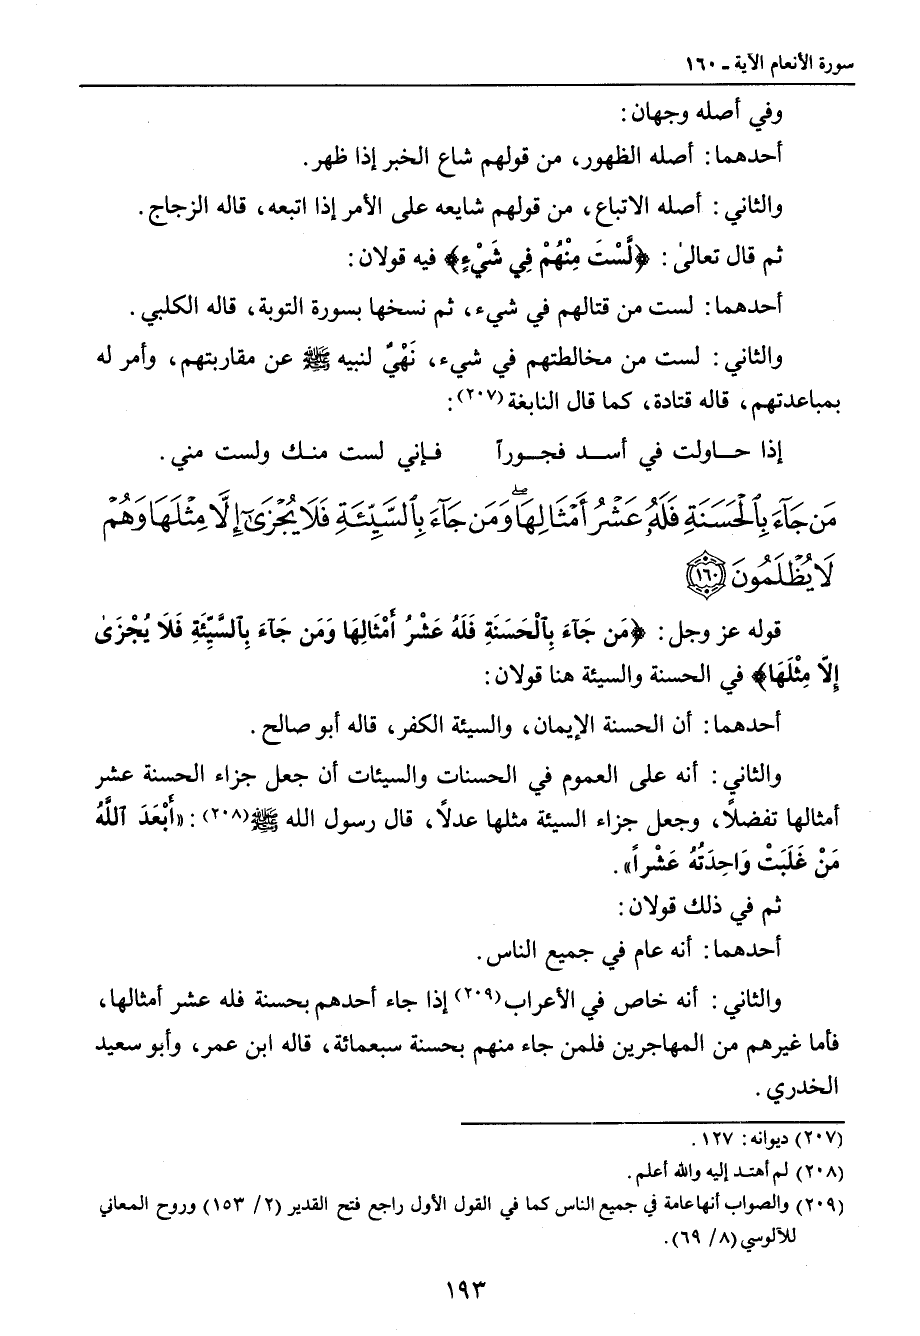 سورة الأنعام الآية ـ ١٦٠
وفي أصله وجهان:
أحدهما: أصله الظهور، من قولهم شاع الخبر إذا ظهر.
والثاني: أصله الاتباع، من قولهم شايعه على الأمر إذا اتبعه، قاله الزجاج.
ثم قال تعالىٰ: ﴿لَّسْتَ مِنْهُمْ فِي شَيْءٍ﴾ فيه قولان:
أحدهما: لست من قتالهم في شيء، ثم نسخها بسورة التوبة، قاله الكلبي.
والثاني: لست من مخالطتهم في شيء، نَهْيٌ لنبيه ﷺ عن مقاربتهم، وأمر له
بمباعدتهم، قاله قتادة، كما قال النابغة(٢٠٧):
إذا حـاولت في أسـد فجـوراً فـإني لست منـك ولست مني.
مَن جَآءَ بِٱلْحَسَنَةِ فَلَهُۥ عَشْرُ أَمْثَالِهَاۖ وَمَن جَآءَ بِٱلسَّيِّئَةِ فَلَا يُجْزَىٰٓ إِلَّا مِثْلَهَا وَهُمْ
لَا يُظْلَمُونَ ١٦٠
قوله عز وجل: ﴿مَن جَآءَ بِٱلْحَسَنَةِ فَلَهُ عَشْرُ أَمْثَالِهَا وَمَن جَآءَ بِٱلسَّيِّئَةِ فَلَا يُجْزَىٰ
إِلَّا مِثْلَهَا﴾ في الحسنة والسيئة هنا قولان:
أحدهما: أن الحسنة الإيمان، والسيئة الكفر، قاله أبو صالح.
والثاني: أنه على العموم في الحسنات والسيئات أن جعل جزاء الحسنة عشر
أمثالها تفضلاً، وجعل جزاء السيئة مثلها عدلاً، قال رسول الله ﷺ(٢٠٨): «أَبْعَدَ ٱللَّهُ
مَنْ غَلَبَتْ وَاحِدَتُهُ عَشْراً».
ثم في ذلك قولان:
أحدهما: أنه عام في جميع الناس.
والثاني: أنه خاص في الأعراب(٢٠٩) إذا جاء أحدهم بحسنة فله عشر أمثالها،
فأما غيرهم من المهاجرين فلمن جاء منهم بحسنة سبعمائة، قاله ابن عمر، وأبو سعيد
الخدري.
(٢٠٧) ديوانه: ١٢٧.
(٢٠٨) لم أهتد إليه والله أعلم.
(٢٠٩) والصواب أنها عامة في جميع الناس كما في القول الأول راجع فتح القدير (٢/ ١٥٣) وروح المعاني
للآلوسي (٨/ ٦٩).
١٩٣